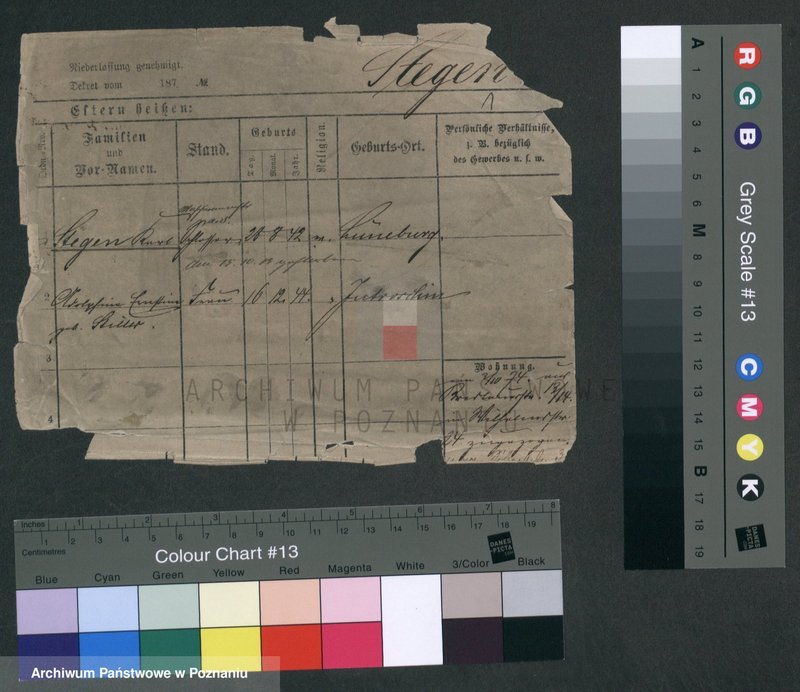 Niederlassung genehmigt.
Dekret vom 187 №
Stegen
Eltern heißen:
Familien und Vor-Namen.
Stand.
Geburts
Tag. Monat. Jahr.
Religion.
Geburts-Ort.
Persönliche Verhältnisse, z. B. bezüglich des Gewerbes u. s. w.
1 Stegen Karl Schlosser 20 8 42 Lüneburg.
2 Ernstine Frau 16 12 44 Jutroschin
geb. Stiller.
3
4
Wohnung.
Wilhelmstr.
24 zugezogen
ARCHIWUM PAŃSTWOWE
W POZNANIU
A 1 2 3 4 5 6 M 8 9 10 11 12 13 14 15 B 17 18 19
R G B
Grey Scale #13
C M Y K
DANES
PICTA
.COM
Inches 1 2 3 4 5 6 7 8
Centimetres 1 2 3 4 5 6 7 8 9 10 11 12 13 14 15 16 17 18 19
Colour Chart #13
DANES
PICTA
.COM
Blue Cyan Green Yellow Red Magenta White 3/Color Black
Archiwum Państwowe w Poznaniu